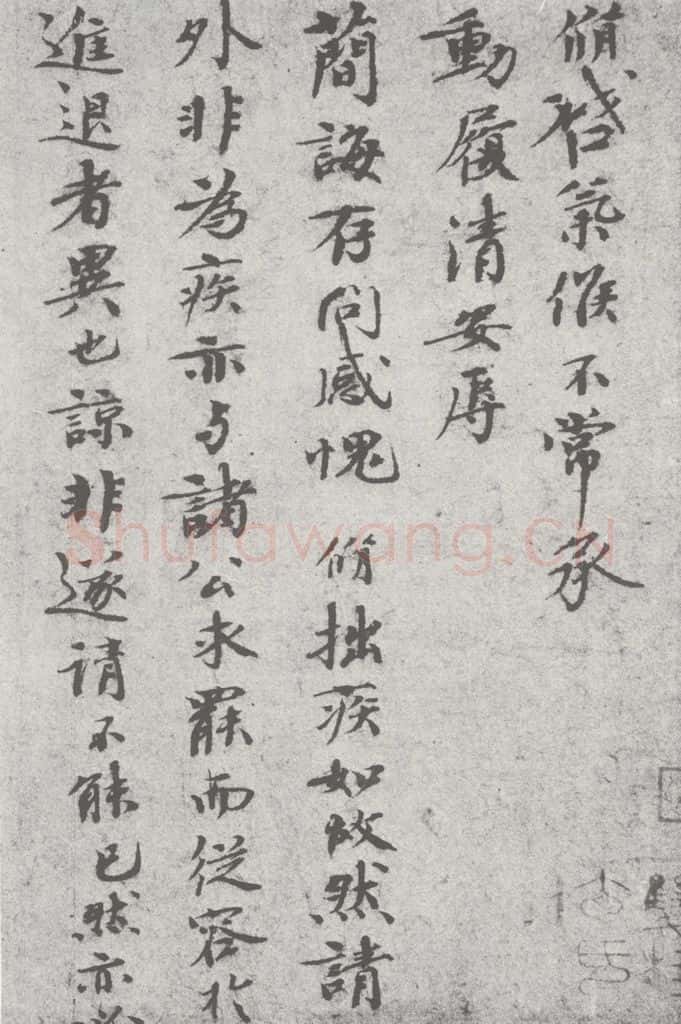 脩啓氣候不常承
動履清安辱
蕑誨存問感愧 脩拙疾如故然請
外非為疾亦与諸公求罷而從容於
進退者異也諒非遂請不能已然亦必
Shufawang.CN